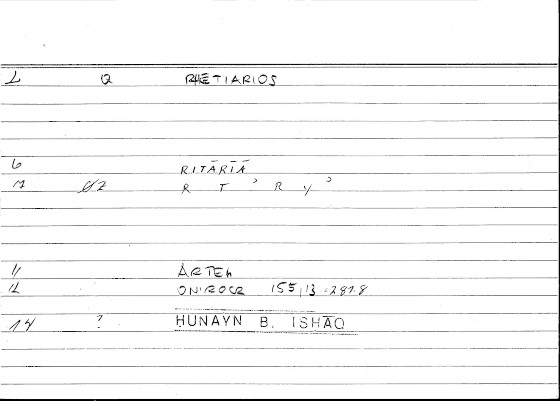 1 Q RHETIARIOS
6 RĪTĀRĪĀ
7 R T ʾ R Y ʾ
11 ARTEM
12 ONIROCR 155,13 = 287.8
14 ? ḤUNAYN B. ISḤĀQ